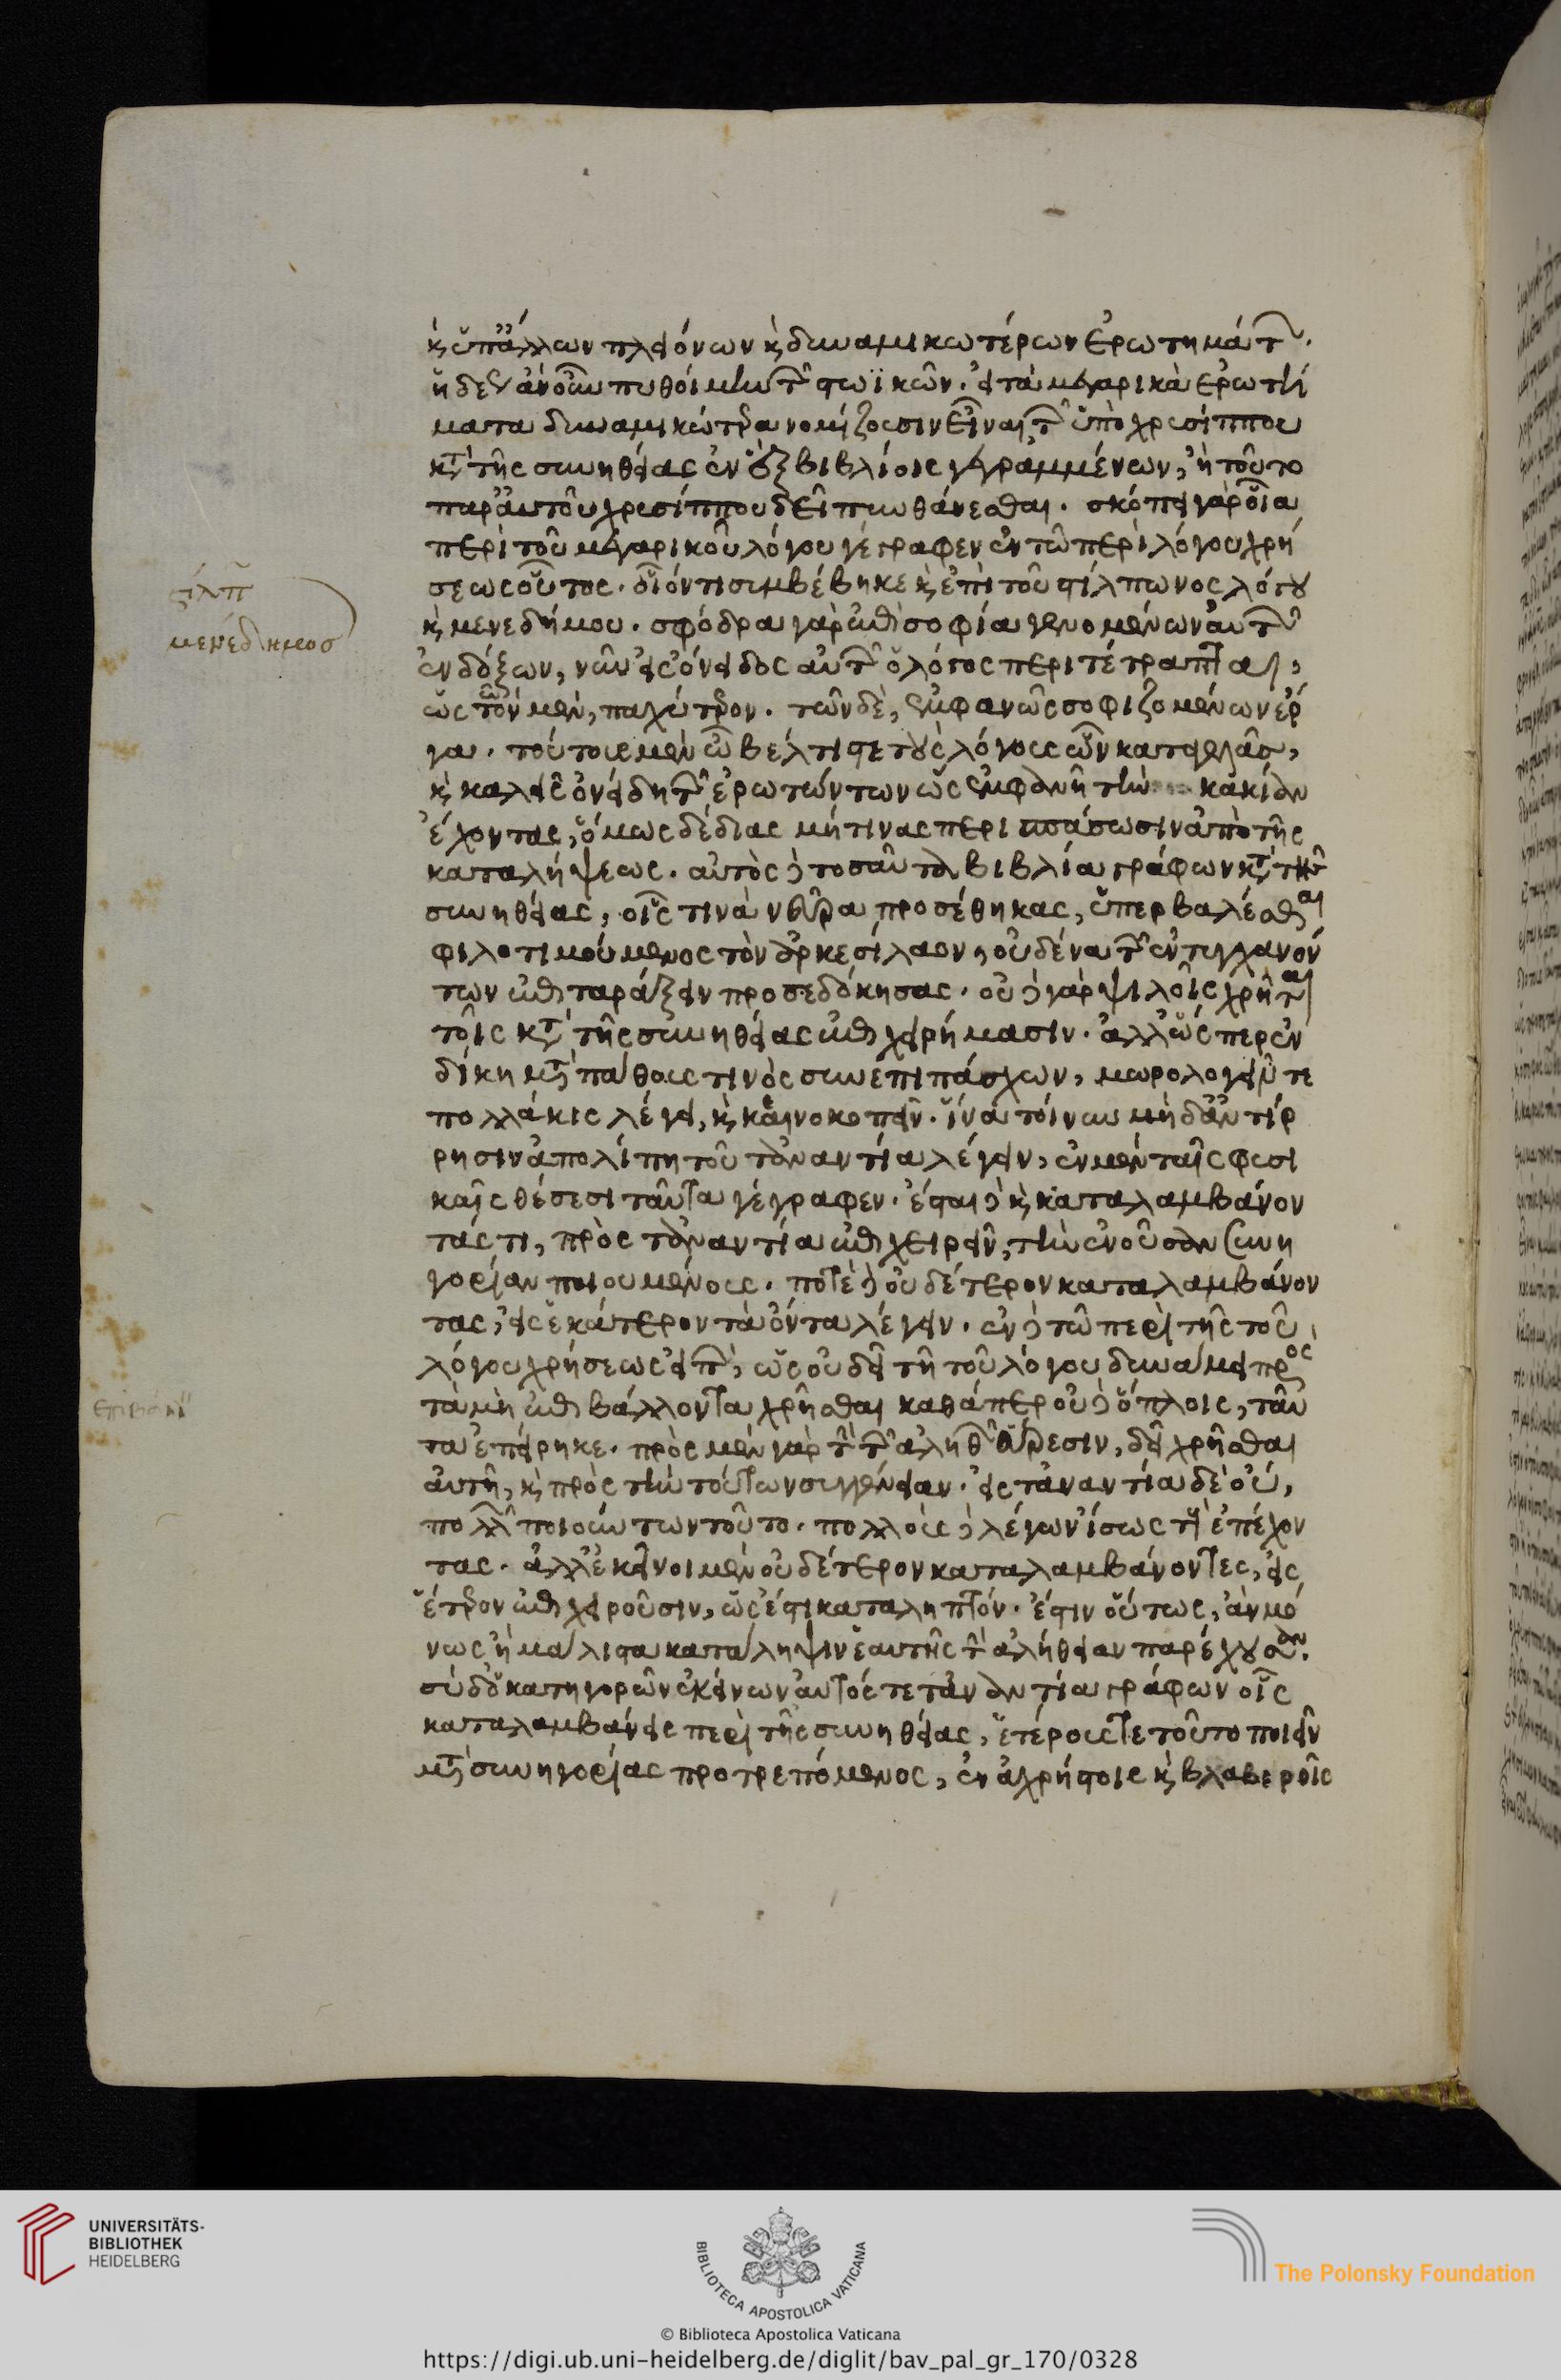 κ ὑπ' ἄλλων πλειόνων κ δυναμικωτέρων ἐρωτημάτων.
ἡδέως ἂν οὖν πυθοίμην τῶν στωϊκῶν. εἰ τὰ μεγαρικὰ ἐρωτή
ματα δυναμικώτερα νομίζουσιν εἶναι τῶν ὑπὸ χρυσίππου
κατὰ τῆς συνηθείας ἐν ἓξ βιβλίοις γεγραμμένων, ἢ τοῦτο
παρ' αὐτοῦ χρυσίππου δεῖ πυνθάνεσθαι. σκόπει γὰρ οἷα
περὶ τοῦ μεγαρικοῦ λόγου γέγραφεν ἐν τῷ περὶ λόγου χρή
σεως οὕτως. οἷόν τι συμβέβηκε κ ἐπὶ τοῦ στίλπωνος λόγου
κ μενεδήμου. σφόδρα γὰρ ἐπὶ σοφία γενομένων αὐτῶν
ἐνδόξων, νῦν εἰς ὄνειδος αὐτῶν ὁ λόγος περιτέτραπται,
ὡς τῶν μὲν, παχύτερον. τῶν δὲ, ἐμφανῶς σοφιζομένων ἔρ
γα. τούτους μὲν ὦ βέλτιστε τοὺς λόγους ὧν καταγελᾶς,
κ καλεῖς ὀνείδη τῶν ἐρωτώντων ὡς ἐμφανῆ τὴν κακίαν
ἔχοντας, ὅμως δέδιας μή τινας περισπάσωσιν ἀπὸ τῆς
καταλήψεως. αὐτὸς δὲ τοσαῦτα βιβλία γράφων κατὰ τῆς
συνηθείας, οἷς τινὰ νεῦρα προσέθηκας, ὑπερβαλέσθαι
φιλοτιμούμενος τὸν ἀρκεσίλαον, οὐδένα τῶν ἐντυγχανόν
των ἐπιταράξειν προσεδόκησας. οὐδὲ γὰρ ψιλοῖς χρῆται
τοῖς κατὰ τῆς συνηθείας ἐπιχειρήμασιν. ἀλλ' ὥσπερ ἐν
δίκη μετὰ πάθους τινὸς συνεπιπάσχων, μωρολογεῖν τε
πολλάκις λέγει, κ καινοκοπεῖν. ἵνα τοίνυν μηδ' ἀντίρ
ρησιν ἀπολίπη τοῦ τἀναντία λέγειν, ἐν μὲν ταῖς φυσι
καῖς θέσεσι ταῦτα γέγραφεν. ἔσται δὲ κ καταλαμβάνον
τάς τι, πρὸς τἀναντία ἐπιχειρεῖν, τὴν ἐνοῦσαν συνη
γορίαν ποιουμένους. ποτὲ δὲ οὐδέτερον καταλαμβάνον
τας, εἰς ἑκάτερον τὰ ὄντα λέγειν. ἐν δὲ τῷ περὶ τῆς τοῦ
λόγου χρήσεως εἰπὼν, ὡς οὐ δεῖ τῆ τοῦ λόγου δυνάμει πρὸς
τὰ μὴ ἐπιβάλλοντα χρῆσθαι καθάπερ οὐδὲ ὅπλοις, ταῦ
τα ἐπείρηκε. πρὸς μὲν γὰρ τὴν τῶν ἀληθῶν εὕρεσιν, δεῖ χρῆσθαι
αὐτῆ, κ πρὸς τὴν τούτων συγγένειαν. εἰς τἀναντία δὲ οὔ,
πολλῶν ποιούντων τοῦτο. πολλοὺς δὲ λέγων ἴσως τοὺς ἐπέχον
τας. ἀλλ' ἐκεῖνοι μὲν οὐδέτερον καταλαμβάνοντες, εἰς
ἕτερον ἐπιχειροῦσιν, ὡς ἔστι καταληπτόν. ἔστιν οὕτως, ἂν μό
νως ἢ μάλιστα κατάληψιν ἑαυτῆς τὴν ἀλήθειαν παρέχουσαν.
σὺ δ' ὁ κατηγορῶν ἐκείνων αὐτός τε τἀναντία γράφων οἷς
καταλαμβάνεις περὶ τῆς συνηθείας, ἑτέρους τε τοῦτο ποιεῖν
μετὰ συνηγορίας προτρεπόμενος, ἐν ἀχρήστοις κ βλαβεροῖς
στίλπων
μενέδημος
UNIVERSITÄTS-
BIBLIOTHEK
HEIDELBERG
BIBLIOTECA APOSTOLICA VATICANA
The Polonsky Foundation
© Biblioteca Apostolica Vaticana
https://digi.ub.uni-heidelberg.de/diglit/bav_pal_gr_170/0328